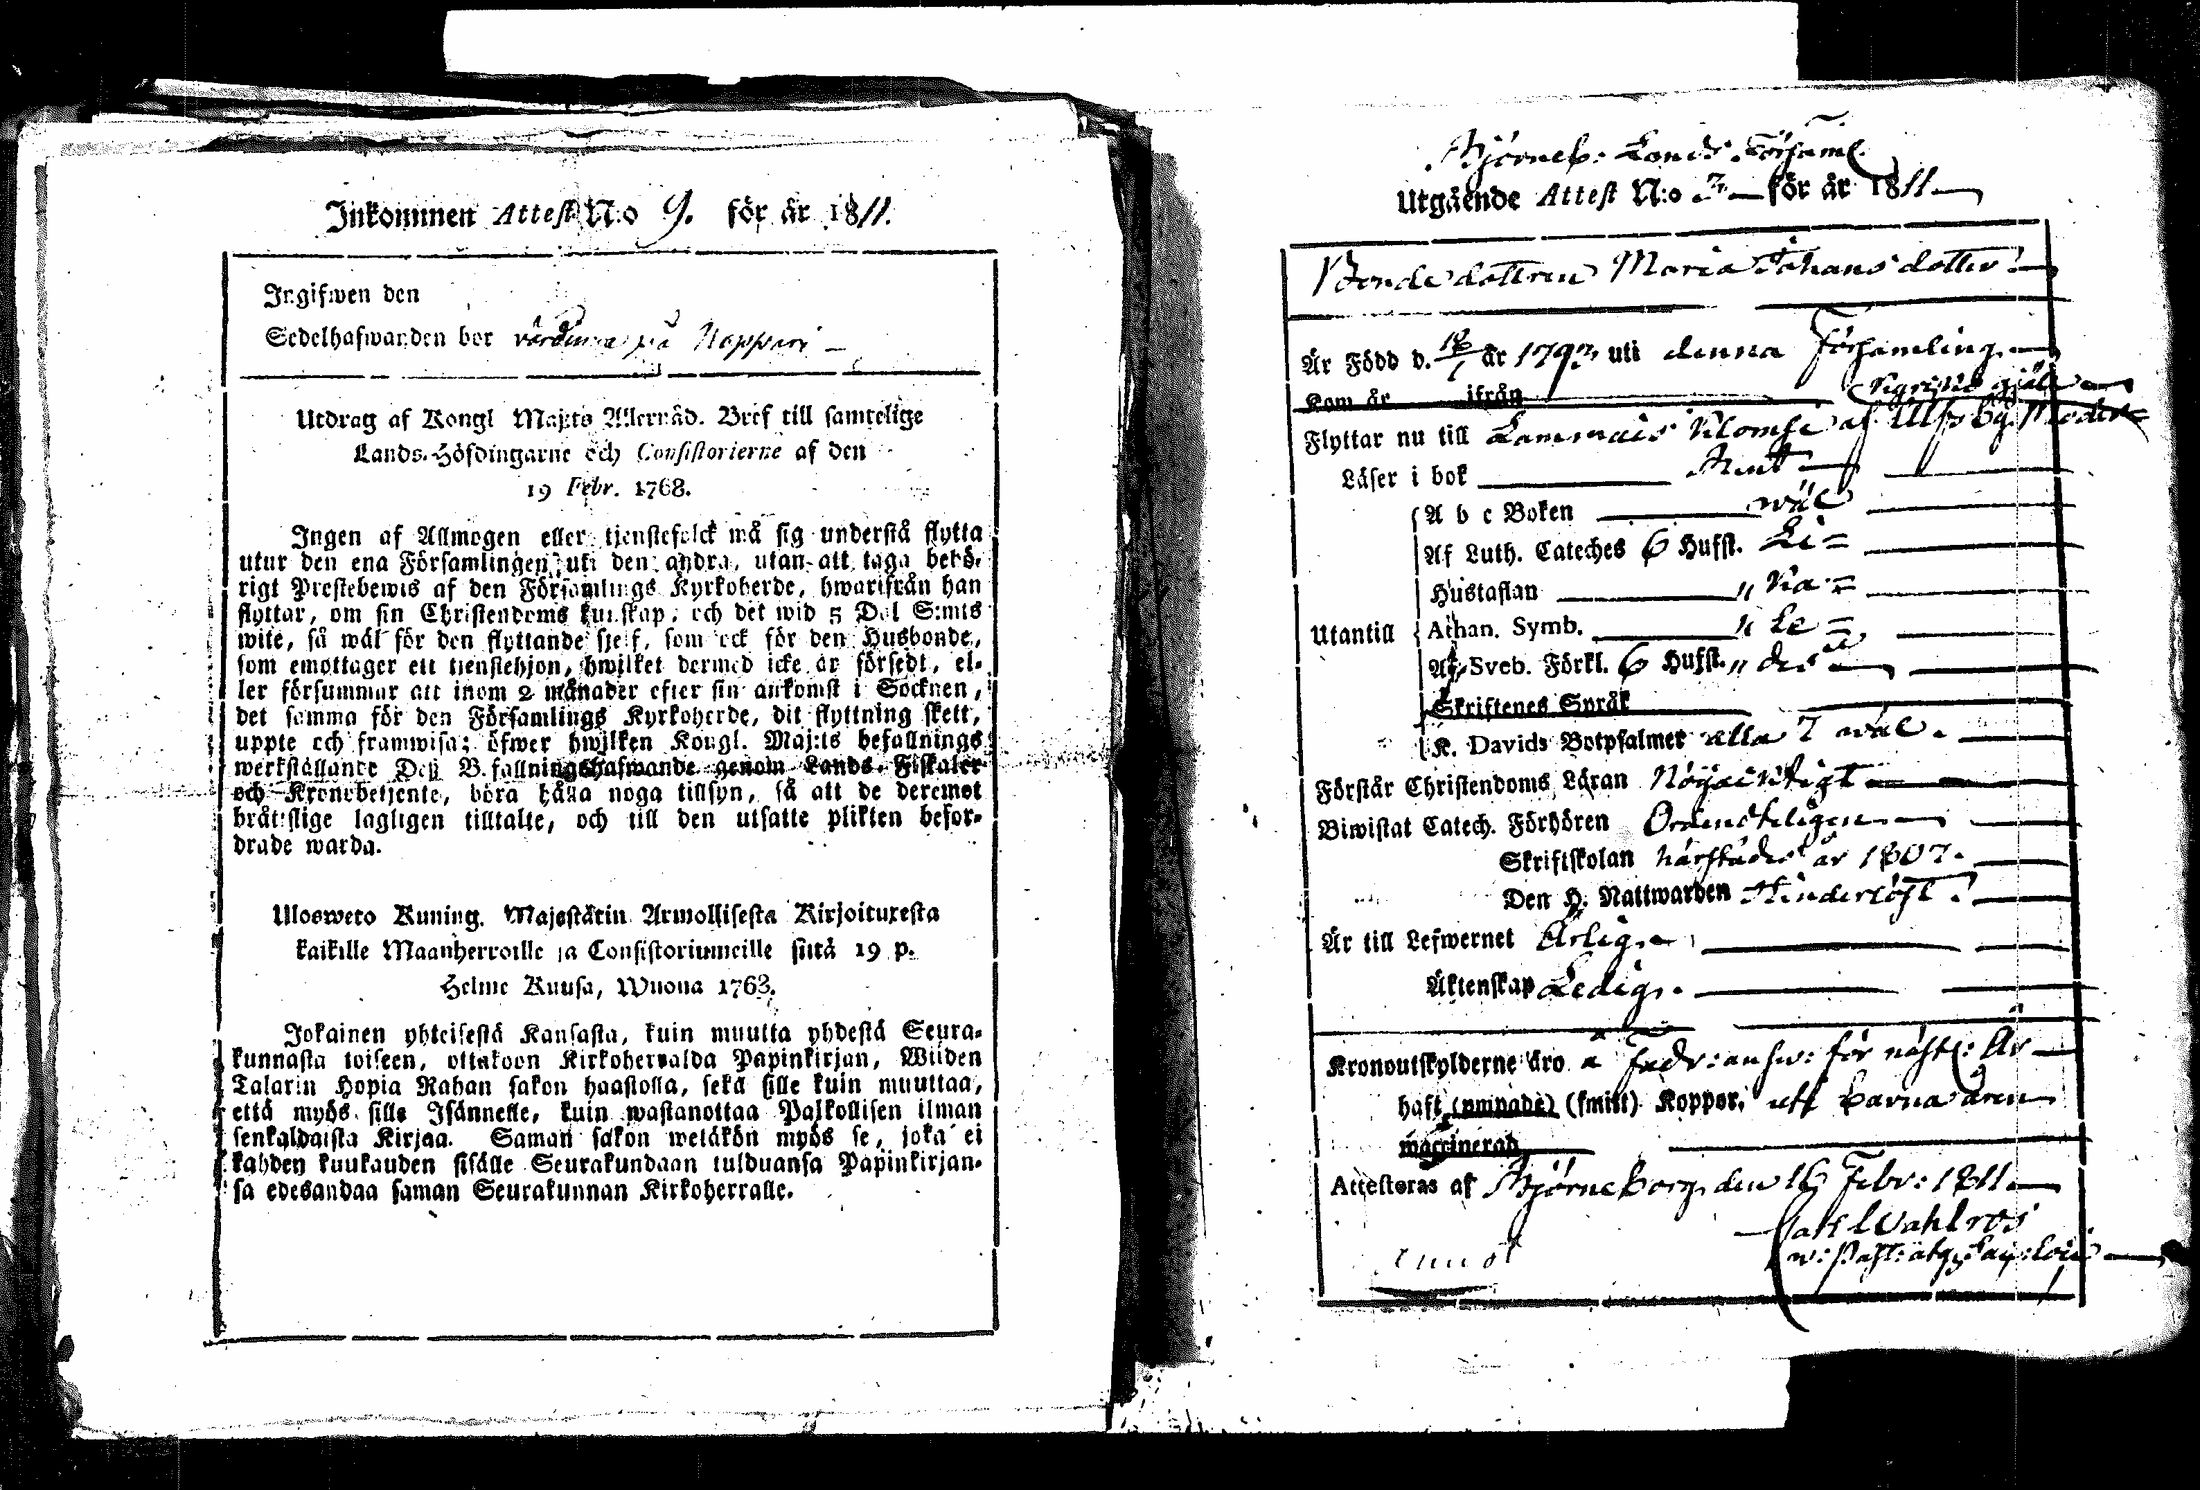 Inkommen Attest N:o 9. för år 1811.
Ingifwen den
Sedelhafwanden bor värdinna på Noppari
Utdrag af Kongl Maj:ts Allernåd. Bref till samtelige
Lands-Höfdingarne och Consistorierne af den
19 Febr. 1768.
Ingen af Allmogen eller tjenstefolck må sig understå flytta
utur den ena Församlingen uti den andra, utan att taga behö-
rigt Prestebewis af den Församlings Kyrkoherde, hwarifrån han
flyttar, om sin Christendoms kunskap, och det wid 5 Dal S:mts
wite, så wäl för den flyttande sjelf, som ock för den Husbonde,
som emottager ett tienstehjon, hwilket dermed icke är försedt, el-
ler försummar att inom 2 månader efter sin ankomst i Socknen,
det samma för den Församlings Kyrkoherde, dit flyttning skett,
uppte och framwisa; öfwer hwilken Kongl. Maj:ts befallnings
werkställande Deß Befallningshafwande genom Lands-Fiskaler
och Kronobetjente, böra hålla noga tillsyn, så att de deremot
bråtslige lagligen tilltalte, och till den utsatte plikten befor-
drade warda.
Ulosweto Kuning. Majestätin Armollisesta Kirjoituxesta
kaikille Maanherroille ja Consistoriumeille siitä 19 p.
Helme Kuusa, Wuona 1763.
Jokainen yhteisestä Kansasta, kuin muutta yhdestä Seura-
kunnasta toiseen, ottakoon Kirkoherralda Papinkirjan, Wiiden
Talarin Hopia Rahan sakon haastolla, sekä sille kuin muuttaa,
että myös sille Isännelle, kuin wastanottaa Palkollisen ilman
senkaldaista Kirjaa. Saman sakon wetäkön myös se, joka ei
kahden kuukauden sisälle Seurakundaan tulduansa Papinkirjan-
sa edesandaa saman Seurakunnan Kirkoherralle.
Björneb: Lands Församl.
Utgående Attest N:o 3 för år 1811.
Bondedottren Maria Johansdotter
Är Född d. 18/1 år 1793 uti denna Församling.
Kom år ifrån
Flyttar nu till Lammais Klomsi af Ulfsby Moder
Läser i bok Rent
A b c Boken wäl
Af Luth. Cateches 6 Hufst. Li=
Hustaflan " ka=
Utantill
Athan. Symb. " Le=
Af Sveb. Förkl. 6 Hufst. " des
Skriftenes Språk
K. Davids Botpsalmer alla 7 wäl.
Förstår Christendoms Läran Nöjaktigt
Biwistat Catech. Förhören Ordenteligen
Skriftskolan härstädes år 1807.
Den H. Nattwarden Hinderlöst.
Är till Lefwernet Ärlig.
Äktenskap Ledig.
Kronoutskylderne äro å Fadr: answ: för näste: År
haft (ympade) (smitt) Koppor, uti barna åren
waccinerad
Attesteras af Björneborg den 16 Febr: 1811.
Wahlros